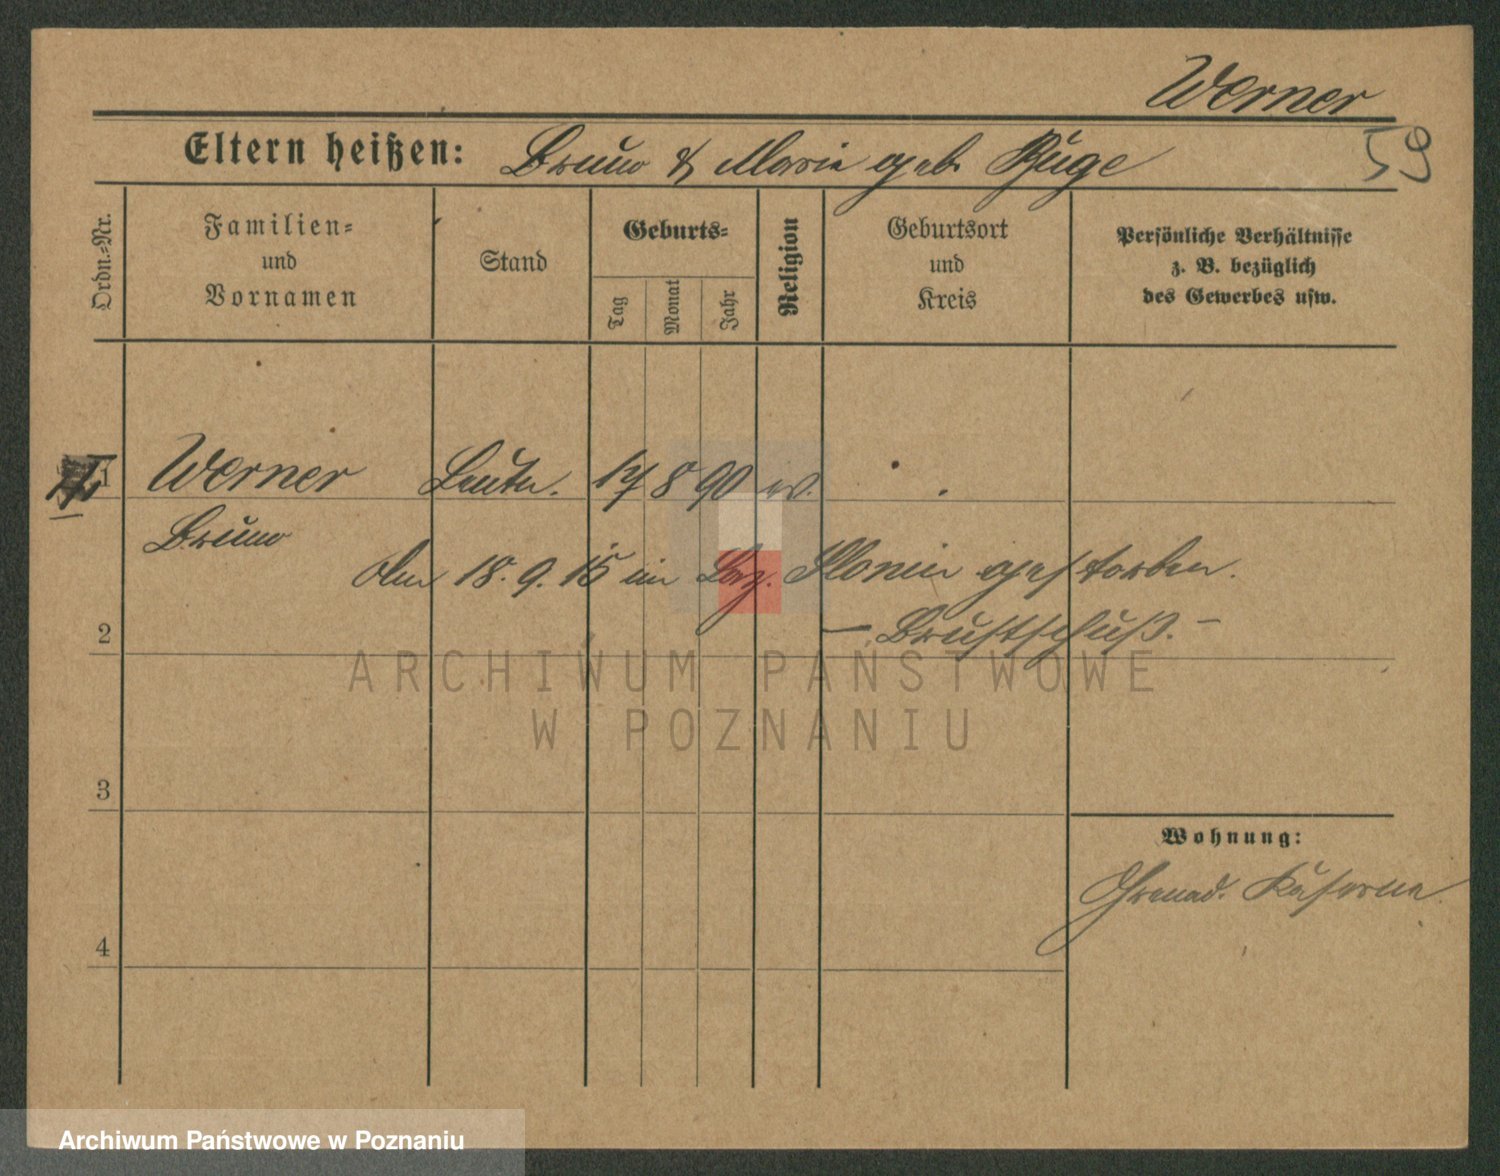 Werner
59
Eltern heißen: Bruno & Marie geb. Ruge
Ordn.-Nr.
Familien-
und
Vornamen
Stand
Geburts-
Tag
Monat
Jahr
Religion
Geburtsort
und
Kreis
Persönliche Verhältnisse
z. B. bezüglich
des Gewerbes usw.
1 Werner Leutn. 17 8 90 ev.
Bruno
Am 18. 9. 15 im Laz. Slonim gestorben.
2 – Brustschuß. –
ARCHIWUM PAŃSTWOWE
W POZNANIU
3
Wohnung:
Grenad. Kaserne
4
Archiwum Państwowe w Poznaniu